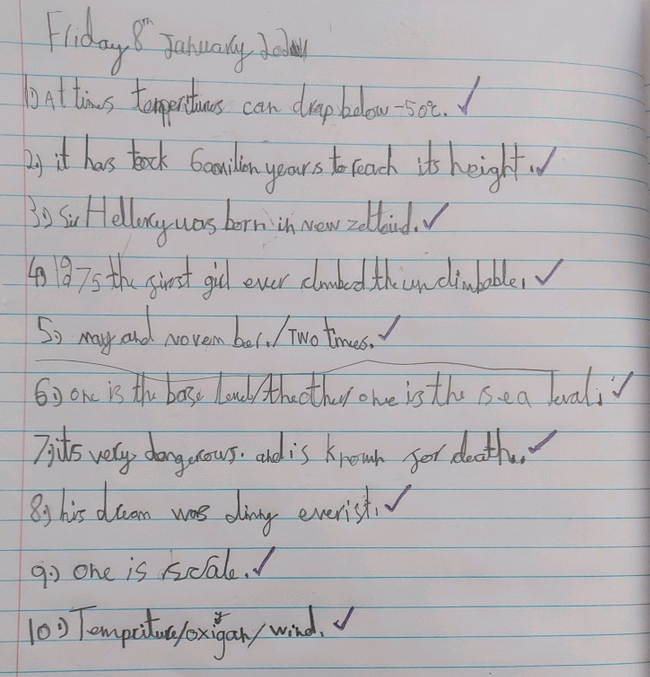 Friday 8th January 2021
1) At times temperitures can drap below -50c.
2.) it has took 60 million years to reach its height.
3.) Sir Hellery was born in new zelland.
4) 1975 the first girl ever climbed the unclimbable.
5.) may and november./Two times.
6.) one is the base level/the other one is the sea level.
7.) its very dangerous. and is known for death.
8.) his dream was climg everist.
9.) one is scale.
10.) Tempriture/oxigah/wind.